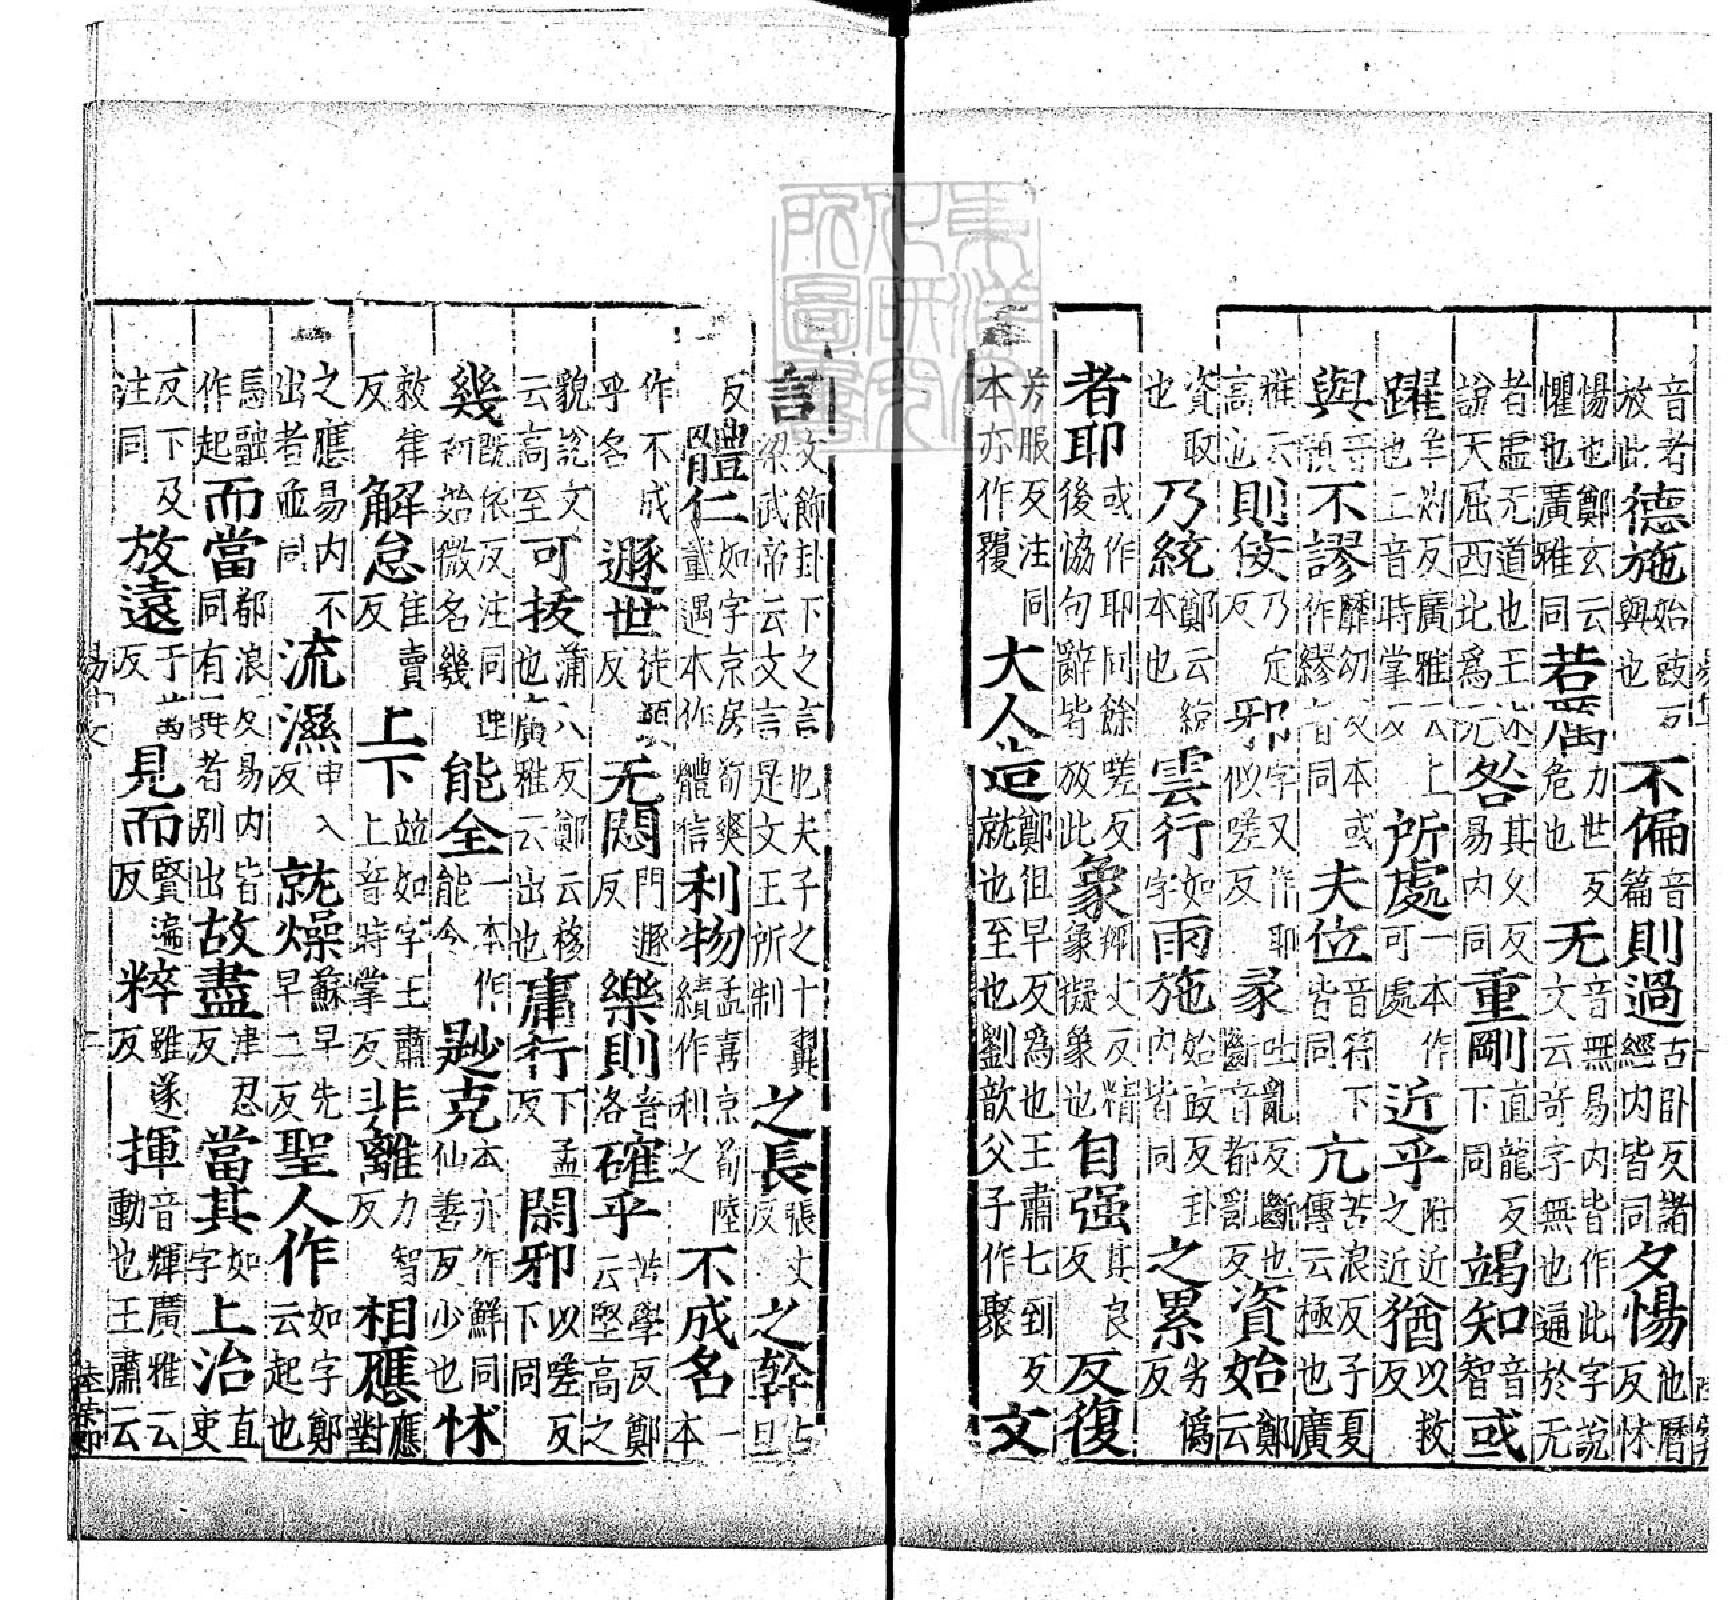 音者放此德施始豉反與也不偏音篇則過古臥反諸經内皆同夕惕他曆反怵
惕也鄭玄云懼也廣雅同若厲力世反危也无音無易内皆作此字說文云奇字無也通於无
者虛无道也王述說天屈西北爲无咎其久反易内同重剛直龍反下同竭知音智或
躍羊灼反廣雅云上也上音時掌反所處一本作可處近乎附近之近猶以救反
與音預不謬靡幼反本或作繆音同夫位音符下皆同亢苦浪反子夏傳云極也廣
雅云高也則佞乃定反邪字又作耶似嗟反彖吐亂反斷也斷音都亂反資始鄭云
資取也乃統鄭云統本也雲行如字雨施始豉反卦内皆同之累劣僞反
者耶或作耶同餘嗟反後協句辭皆放此象翔丈反精象擬象也自强其良反反復
芳服反注同本亦作覆大人造鄭徂早反爲也王肅七到反就也至也劉歆父子作聚文
言文飾卦下之言也夫子之十翼梁武帝云文言是文王所制之長張丈反之幹古旦
反體仁如字京房荀爽董遇本作體信利物孟喜京荀陸績作利之不成名一本
作不成乎名遯世徒頓反无悶門遜反樂則音洛確乎苦學反鄭云堅高之
貌說文云高至可拔蒲八反鄭云移也廣雅云出也庸行下孟反閑邪以嗟反下同
幾既依反注同理初始微名幾能全一本作能令尟克本亦作鮮同仙善反少也怵
敕律反解怠佳賣反上下並如字王肅上音時掌反非離力智反相應應對
之應易内不出者並同流濕申入反就燥蘇早反先早二反聖人作如字鄭云起也
馬融作起而當都浪反易内皆同有異者別出故盡津忍反當其如字上治直吏
反下及注同放遠于萬反見而賢遍反粹雖遂反揮音輝廣雅云動也王肅云